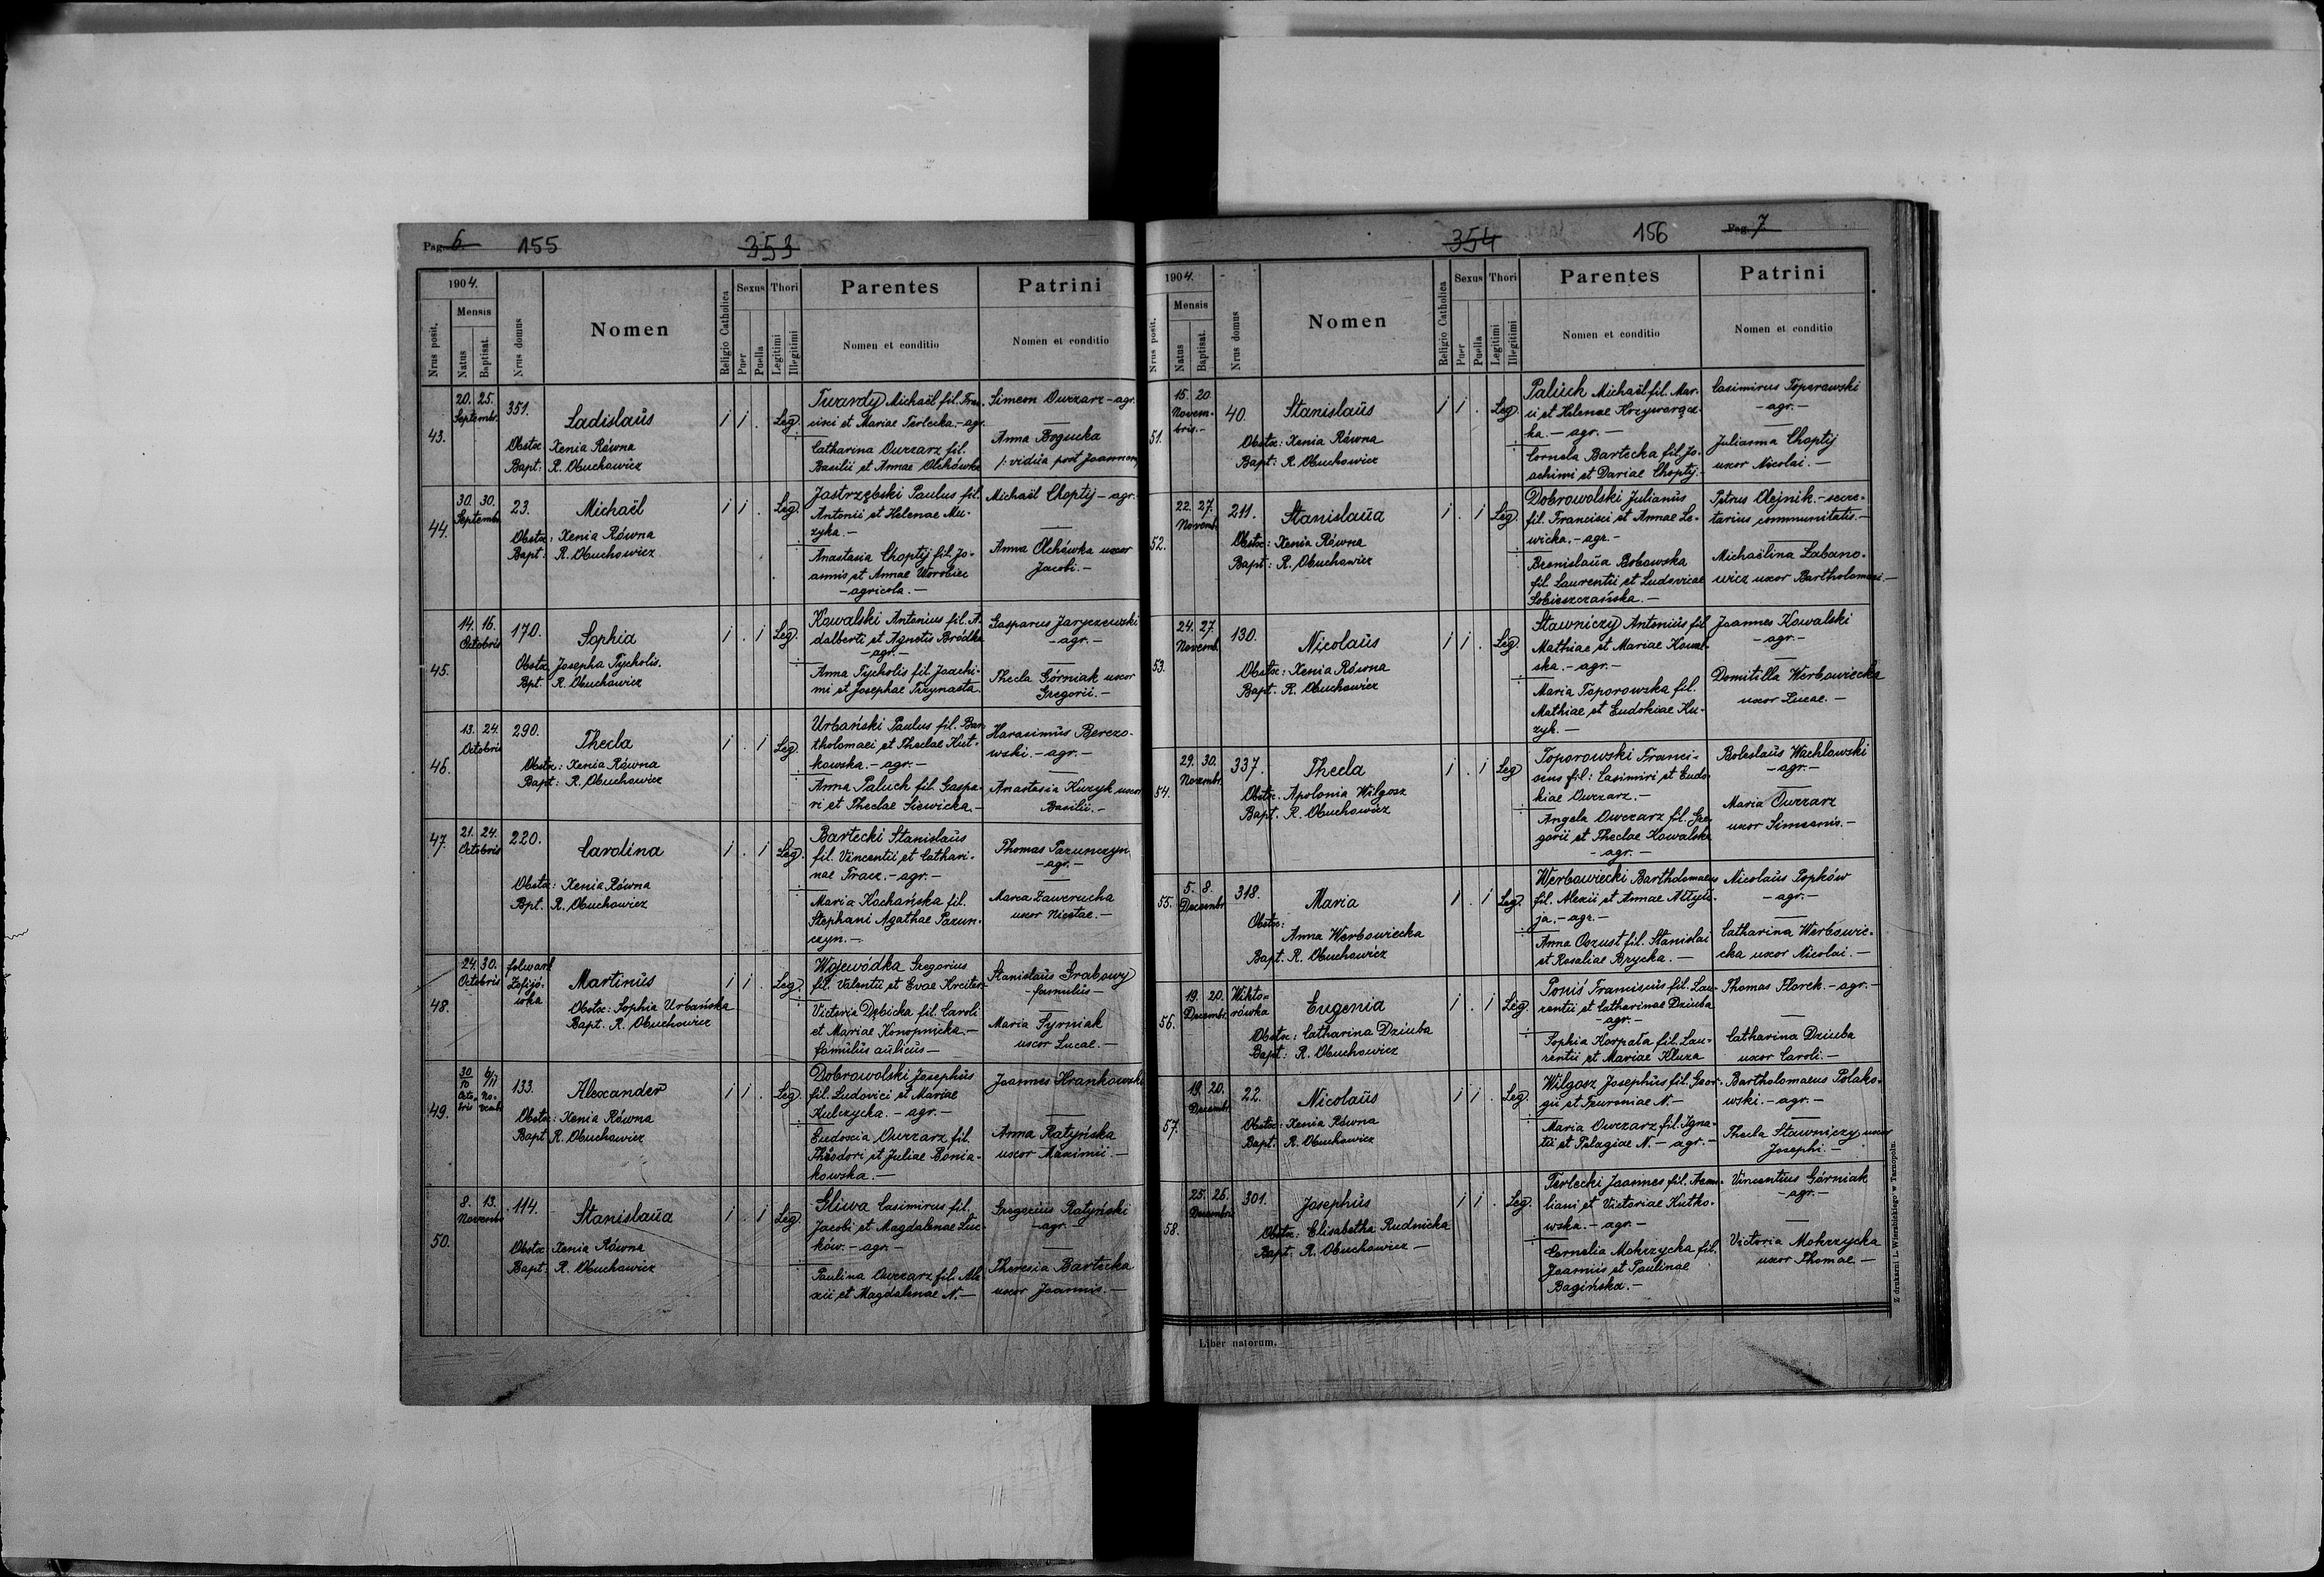 Pag. 6 155 353
1904.
Mensis
Nrus posit.
Natus
Baptisat.
Nrus domus
Nomen
Religio Catholica
Sexus
Puer
Puella
Thori
Legitimi
Illegitimi
Parentes
Nomen et conditio
Patrini
Nomen et conditio
43.
20. 25.
Septembr.
351.
Ladislaŭs
Obstx: Xenia Równa
Bapt: R. Obuchowicz
i i . Leg.
Twardy Michaël fil. Fran-
cisci et Mariae Terlecka. - agr.
Catharina Owczarz fil.
Basilii et Annae Olchówka
Simeon Owczarz - agr.
Anna Bogucka
/: vidŭa post Joannem
44.
30. 30.
Septembr.
23.
Michaël
Obstx: Xenia Równa
Bapt: R. Obuchowicz
i i . Leg.
Jastrzębski Paulus fil.
Antonii et Helenae Mu-
zyka. -
Anastasia Choptij fil. Jo-
annis et Annae Worobiec
- agricola. -
Michaël Choptij - agr.
Anna Olchówka uxor
Jacobi. -
45.
14. 16.
Octobris
170.
Sophia
Obstx. Josepha Tycholis.
Bpt. R. Obuchowicz
i . i Leg.
Kowalski Antonius fil. A-
dalberti et Agnetis Bródka
- agr. -
Anna Tycholis fil. Joachi-
mi et Josephae Trzynasta.
Gasparus Jaryczewski
- agr. -
Thecla Górniak uxor
Gregorii. -
46.
13. 24.
Octobris
290.
Thecla
Obstx: Xenia Równa
Bapt: R. Obuchowicz
i . i Leg.
Urbański Paulus fil. Bar-
tholomaei et Theclae Kut-
kowska. - agr. -
Anna Paluch fil. Gaspa-
ri et Theclae Siewicka. -
Harasimŭs Berezo-
wski. - agr. -
Anastasia Kuzyk uxor
Basilii. -
47.
21. 24.
Octobris
220.
Carolina
Obstx: Xenia Równa
Bpt. R. Obuchowicz
i . i Leg.
Bartecki Stanislaŭs
fil. Vincentii et Cathari-
nae Tracz. - agr. -
Maria Kochańska fil.
Stephani Agathae Pazun-
czyn. -
Thomas Pazunczyn
- agr. -
Maria Zawerucha
uxor Nicetae. -
48.
24. 30.
Octobris
folwark
Zofijó-
wka
Martinŭs
Obstx: Sophia Urbańska
Bapt: R. Obuchowicz
i i . Leg.
Wojewódka Gregorius
fil. Valentii et Evae Kreiter. -
Victoria Dębicka fil. Caroli
et Mariae Konopnicka. -
famŭlŭs aŭlicŭs -
Stanislaŭs Grabowy
- famulŭs -
Maria Syrniak
uxor Lucae. -
49.
30/10 6/11
Octo- No-
bris vembr.
133.
Alexander
Obstx: Xenia Równa
Bapt R. Obuchowicz
i i . Leg.
Dobrowolski Josephŭs
fil. Ludovici et Mariae
Kulczycka. - agr. -
Eudoxia Owczarz fil.
Theodori et Juliae Bonia-
kowska. -
Joannes Krankowski
Anna Ratyńska
uxor Maximii. -
50.
8. 13.
Novembr.
114.
Stanislaŭa
Obstx: Xenia Równa
Bapt: R. Obuchowicz
i . i Leg.
Gliwa Casimirus fil.
Jacobi et Magdalenae Luc-
ków. - agr. -
Paulina Owczarz fil. Ale-
xii et Magdalenae N. -
Gregorius Ratyński
- agr. -
Theresia Bartecka
uxor Joannis. -
354 156 Pag. 7
1904.
Mensis
Nrus posit.
Natus
Baptisat.
Nrus domus
Nomen
Religio Catholica
Sexus
Puer
Puella
Thori
Legitimi
Illegitimi
Parentes
Nomen et conditio
Patrini
Nomen et conditio
51.
15. 20.
Novem-
bris. -
40.
Stanislaŭs
Obstx: Xenia Równa
Bapt: R. Obuchowicz
i i . Leg.
Paluch Michaël fil. Mar-
ci et Helenae Krzyworącz-
ka. - agr. -
Cornela Bartecka fil. Jo-
achimi et Dariae Choptij. -
Casimirus Toporowski
- agr. -
Julianna Choptij
uxor Nicolai. -
52.
22. 27.
Novembr.
211.
Stanislaŭa
Obstx: Xenia Równa
Bapt: R. Obuchowicz
i . i Leg.
Dobrowolski Julianŭs
fil. Francisci et Annae Le-
wicka. - agr. -
Bronislaŭa Bobowska
fil. Laurentii et Ludovicae
Sobieszczańska. -
Petrus Olejnik. - secre-
tarius communitatis. -
Michaëlina Łabano-
wicz uxor Bartholomaei. -
53.
24. 27.
Novemb.
130.
Nicolaŭs
Obstx: Xenia Równa
Bapt: R. Obuchowicz
i i . Leg.
Stawniczy Antoniŭs fil.
Mathiae et Mariae Kowal-
ska. - agr. -
Maria Toporowska fil.
Mathiae et Eudokiae Ku-
zyk. -
Joannes Kowalski
- agr. -
Domitilla Werbowiecka
uxor Lucae. -
54.
29. 30.
Novembr.
337.
Thecla
Obstx. Apolonia Wilgosz
Bapt. R. Obuchowicz
i . i Leg
Toporowski Franci-
scus fil: Casimiri et Eudo-
kiae Owczarz. -
Angela Owczarz fil. Gre-
gorii et Theclae Kowalska
- agr. -
Boleslaŭs Wachlowski
- agr. -
Maria Owczarz
uxor Simeonis. -
55.
5. 8.
Decembr.
318.
Maria
Obstx:
Anna Werbowiecka
Bapt. R. Obuchowicz
i . i Leg.
Werbowiecki Bartholomaeus
fil. Alexii et Annae
ja. - agr. -
Anna Oszust fil. Stanislai
et Rosaliae Brycka. -
Nicolaŭs Popków
- agr. -
Catharina Werbowie-
cka uxor Nicolai. -
56.
19. 20.
Decembr.
Wikto-
rówka
Eugenia
Obstx: Catharina Dziuba
Bapt: R. Obuchowicz
i . i Leg.
Poniś Franciscus fil. Lau-
rentii et Catharinae Dziuba
- agr. -
Sophia Korpała fil. Lau-
rentii et Mariae Kluza
Thomas Florek. - agr. -
Catharina Dziuba
uxor Caroli. -
57.
19. 20.
Decembr.
22.
Nicolaŭs
Obstx: Xenia Równa
Bapt: R. Obuchowicz
i i . Leg.
Wilgosz Josephŭs fil. Geor-
gii et Fevroniae N. -
Maria Owczarz fil. Igna-
tii et Pelagiae N. - agr. -
Bartholomaeus Polako-
wski. - agr. -
Thecla Stawniczy uxor
Josephi. -
58.
25. 26.
Decembr.
301.
Josephŭs
Obstx: Elisabetha Rudnicka
Bapt: R. Obuchowicz -
i i . Leg.
Terlecki Joannes fil. Aemi-
liani et Victoriae Kutko-
wska. - agr. -
Cornelia Mokrzycka fil.
Joannis et Paulinae
Bagińska. -
Vincentius Górniak
- agr. -
Victoria Mokrzycka
uxor Thomae. -
Liber natorum.
Z drukarni L. Wierzbickiego w Tarnopolu.